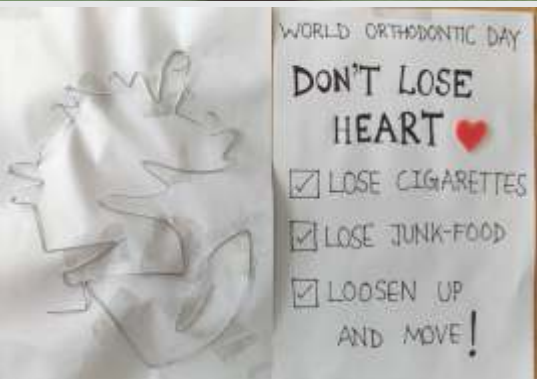 WORLD ORTHODONTIC DAY
DON'T LOSE
HEART
LOSE CIGARETTES
LOSE JUNK-FOOD
LOOSEN UP
AND MOVE!